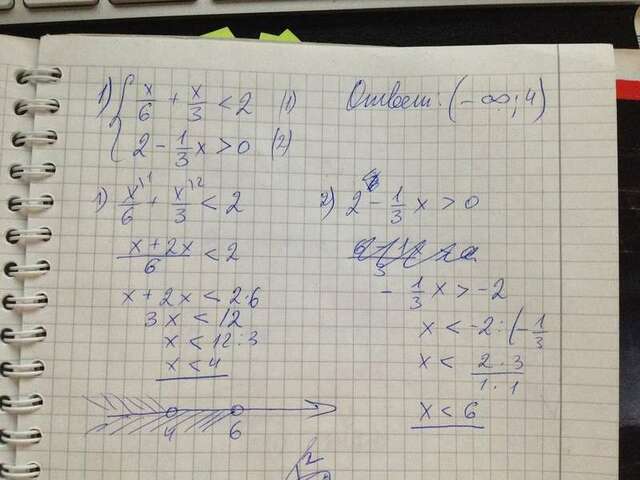 1) { x/6 + x/3 < 2 (1)
2 - 1/3 x > 0 (2)
Ответ: (-∞; 4)
1) x\1/6 + x\2/3 < 2
x + 2x/6 < 2
x + 2x < 2·6
3x < 12
x < 12 : 3
x < 4
4 6
2) 2 - 1/3 x > 0
- 1/3 x > -2
x < -2 : (- 1/3
x < 2 · 3/1 · 1
x < 6
2